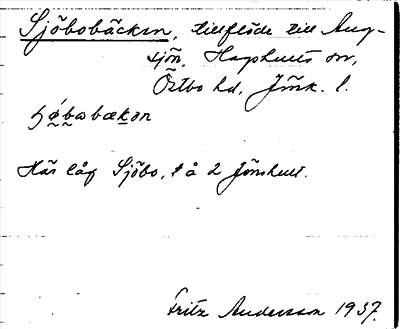 Sjöbobäcken, tillflöde till Ang-
sjön, Hagshults sn,
Östbo hd, Jönk. l.
ʃǿbobækən
Här låg Sjöbo, t å 2 Jönshult.
Fritz Andersson 1937.